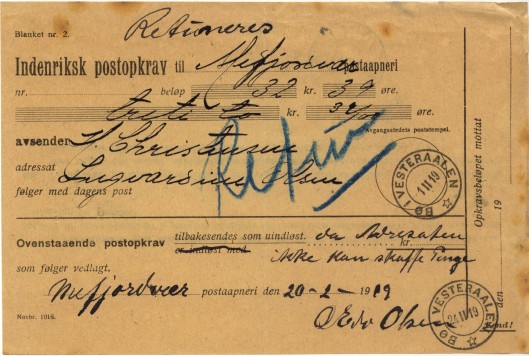 Retuneres
Blanket nr. 2.
Indenriksk postopkrav til Mefjordvær postaapneri
nr. beløp 32 kr. 39 øre.
treti to kr. 39/100 øre.
Avgangsstedets poststempel.
avsender H. Christensen
Retur
adressat Ingvardsen Olsen
følger med dagens post
BØ I VESTERAALEN
1 II 19
Opkravsbeløpet mottat
den 19
Ovenstaaende postopkrav tilbakesendes som uindløst. da Adresaten
er indløst med kr.
Ikke kan skaffe Penge
som følger vedlagt.
Mefjordvær postaapneri den 20-2-1919
Edv Olsen
Novbr. 1916.
BØ I VESTERAALEN
24 II 19
Kond.!